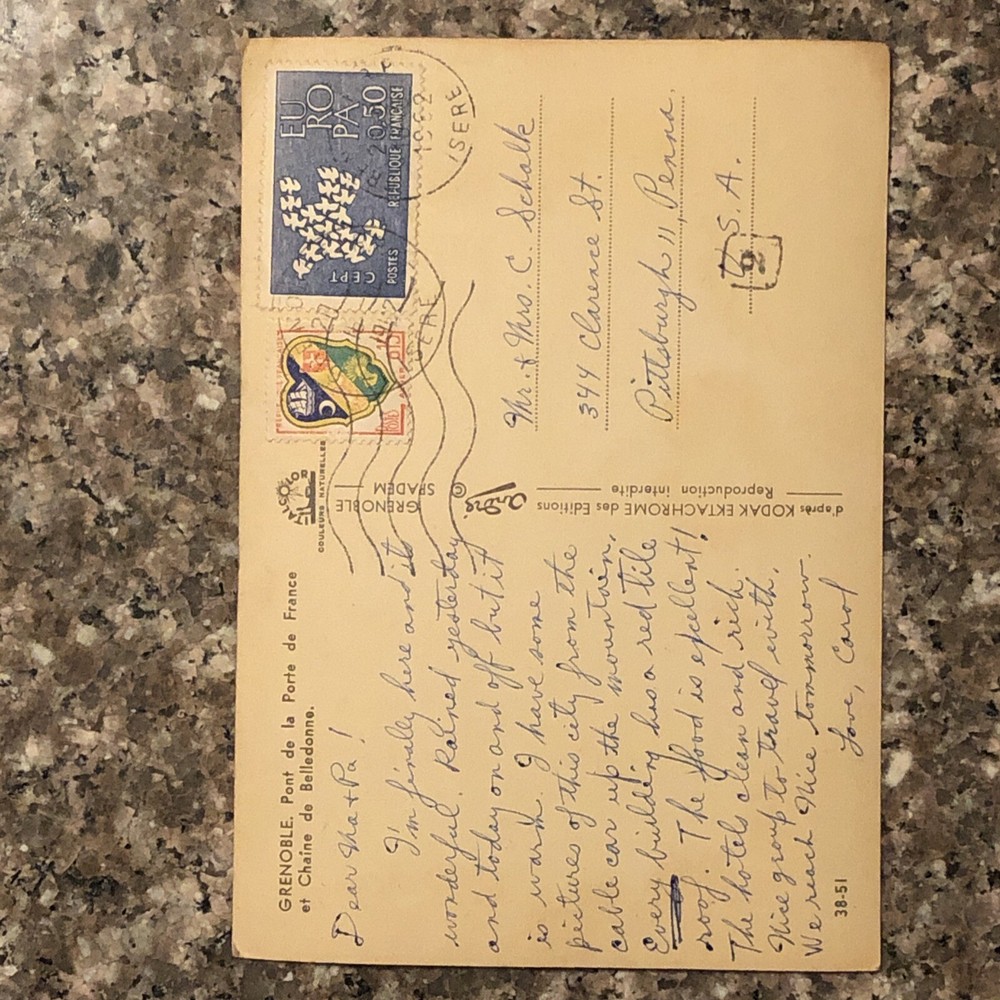 GRENOBLE. Pont de la Porte de France
et Chaine de Belledonne.
Dear Ma + Pa!
I'm finally here and it's
wonderful. Rained yesterday
and today on and off but it
is warm. I have some
pictures of this city from the
cable car up the mountain.
Every building has a red tile
roof. The food is excellent!
The hotels clean and rich.
Nice group to travel with.
We reach Nice tommorrow.
Love, Carol
38-51
COULEURS NATURELLES
GRENOBLE
SPADEM
©
d'après KODAK EKTACHROME des Editions
Reproduction interdite
EU
RO
PA
0,50
REPUBLIQUE FRANÇAISE
POSTES
CEPT
1962
ISERE
Mr. & Mrs. C. Schalk
344 Clarence St.
Pittsburgh 11, Penna.
U.S.A.